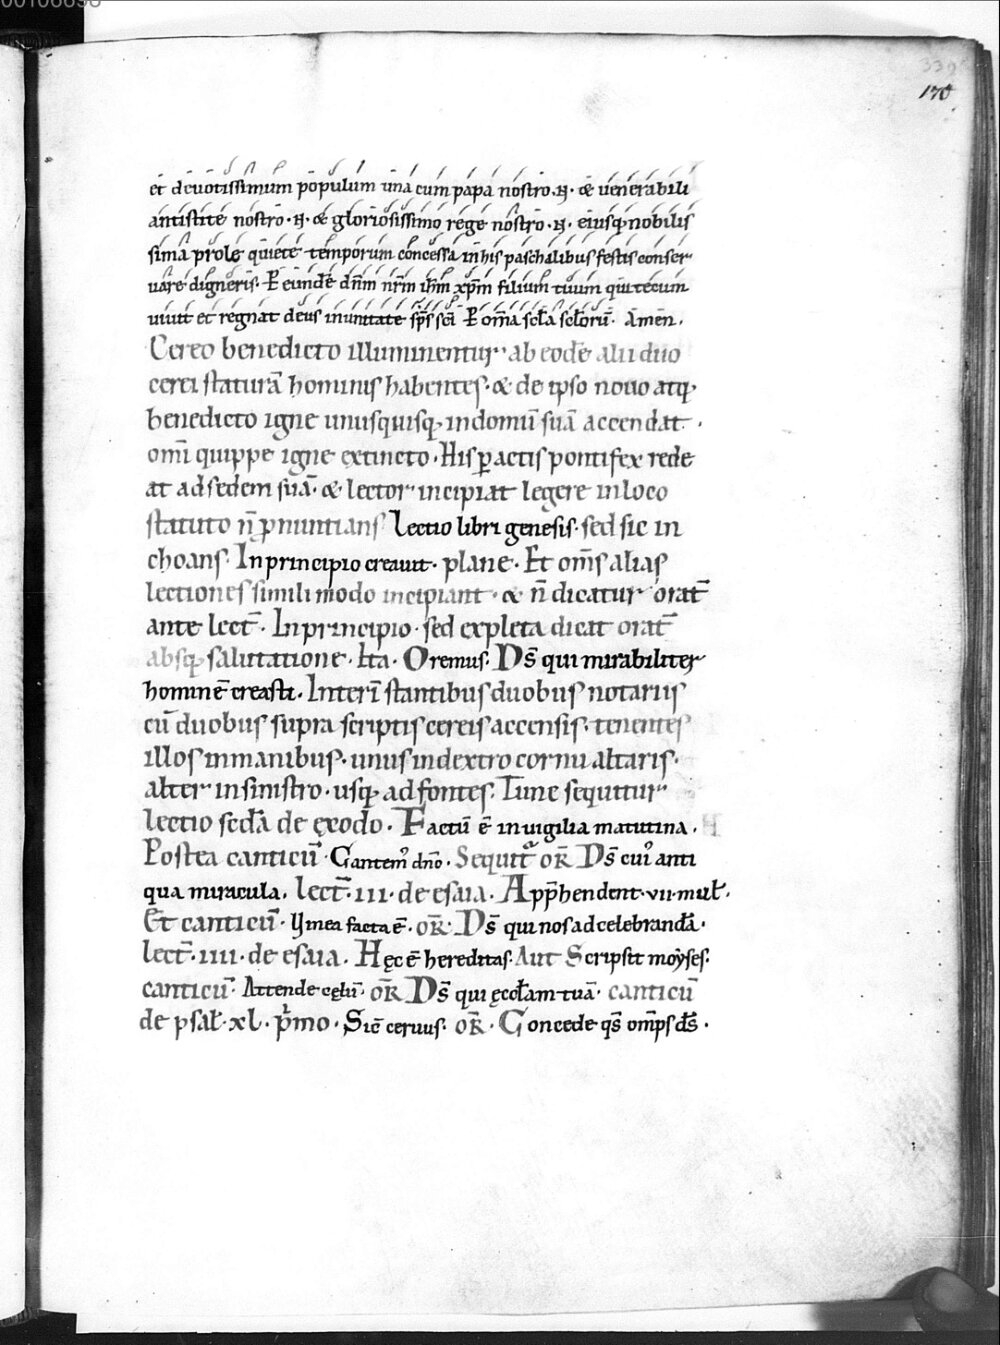 00106696
332
170
et deuotissimum populum una cum papa nostro .N. & uenerabili
antistite nostro .N. & gloriosissimo rege nostro .N. eiusq; nobilis
sima prole quiete temporum concessa in his paschalibus festis conser
uare digneris. P eundē dn̄m nr̄m ih̄m xp̄m filium tuum qui tecum
uiuit et regnat deus in unitate sp̄s sc̄i P om̄a sc̄la sc̄lorū. Amen.
Cereo benedicto illuminentur ab eodē alii duo
cerei staturā hominis habentes. & de ipso nouo atq;
benedicto igne unusquisq; in domū suā accendat.
om̄i quippe igne extincto. His ꝑactis pontifex rede
at ad sedem suā. & lector incipiat legere in loco
statuto n̄ p̄nuntians Lectio libri genesis. sed sic in
choans. In principio creauit. plane. Et om̄s alias
lectiones simili modo incipiant. & n̄ dicatur orat̄
ante lect̄. In principio. sed expleta dicat orat̄
absq; salutatione. Ita. Oremus. Ds̄ qui mirabiliter
hominē creasti. Interī stantibus duobus notariis
cū duobus supra scriptis cereis accensis. tenentes
illos in manibus. unus in dextro cornu altaris.
alter in sinistro. usq; ad fontes. Tunc sequitur
lectio sed̄a de exodo. Factū ē in uigilia matutina.
Postea canticū. Cantem᾽ dn̄o. Sequit᾽ or̄ Ds̄ cui᾽ anti
qua miracula. lect̄. III. de esaia. App̄hendent. VII. mul̄.
Et canticū. Vinea facta ē. or̄. Ds̄ qui nos ad celebrandā.
lect̄. IIII. de esaia. Hęc ē hereditas. Aut Scripsit moyses.
canticū. Attende cęlū. or̄ Ds̄ qui ęccl̄am tuā. canticū
de psal̄. xl. p̄mo. Sic̄ ceruus. or̄. Concede qs̄ omp̄s ds̄.